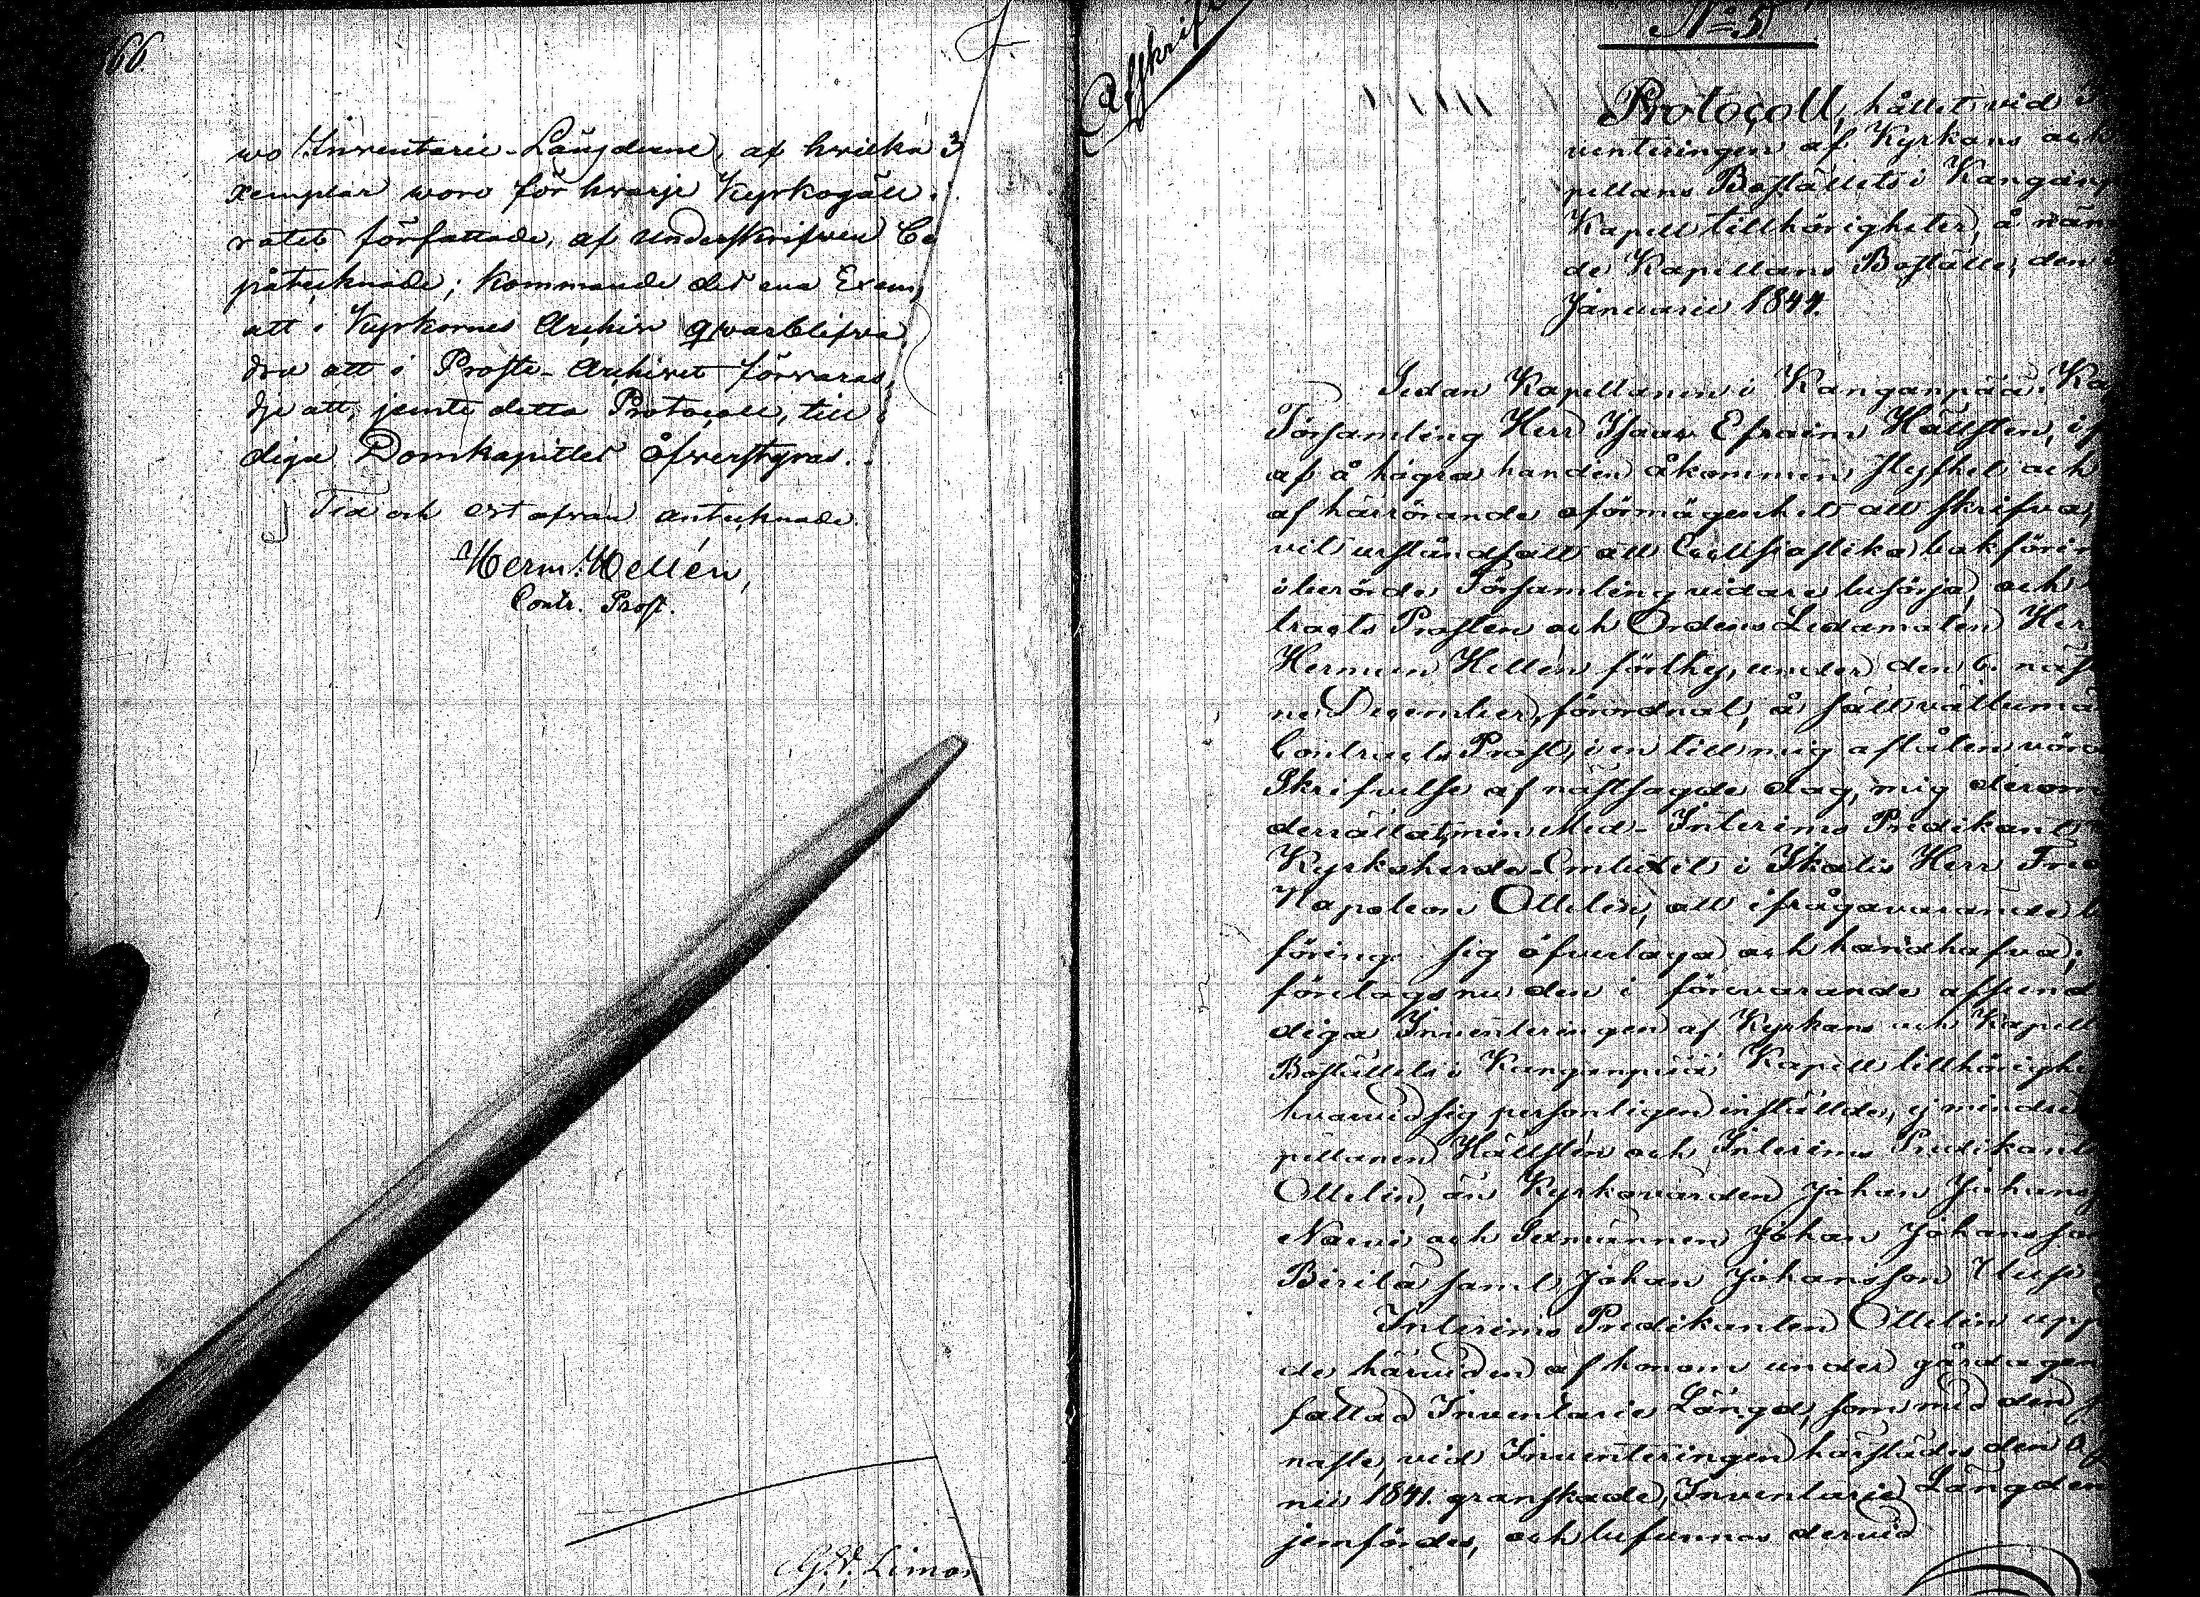 66.
wo Inventarie-Längderne, af hvilka 3
xemplar woro för hvarje Kyrkogäll.
ratet författade, af Underskrifven Co
påtecknade; kommande det ena Exem
att i Kyrkornes Archiv qwarblifva,
dra att i Proste-Archivet förvaras,
dje att, jemte detta Protocoll, till
diga Domkapitlet öfverstyras.
Tid och ort ofvan antecknade.
Herm. Hellén,
Contr. Prost.
G. V. Limo
Afskrift
No 5
Protocoll, hållet vid i
venteringen af Kyrkans och
pellans Boställets i Kangan
Kapell tillhörigheter, å näm
de Kapellans Boställe, den
Januarii 1844.
Sedan Kapellanen i Kanganpää Ka
Församling Herr Isaac Efraim Hällsten, i
af å högra handen åkommen styfhet och
af härrörande oförmögenhet att skrifva,
vit urståndsatt att Ecclesiastika bokförin
i berörde Församling vidare besörja, och
tracts Prosten och Ordens Ledamoten Her
Herman Hellén förthy, under den 6. näst
ne December, förordnat, å sätt välbemä
Contracts Prost, i en till mig aflåten vörd
Skrifvelse af nästsagde dag, mig derom
derrättat, min Med-Interims Predikant
Kyrkoherde-Embetet i Ikalis Herr Fred
Napoleon Ottelin, att ifrågavarande b
föring sig öfvertaga och handhafva;
företogs nu den i förevarande afseend
diga Inventeringen af Kyrkans och Kapell
Boställets i Kanganpää Kapell tillhörighe
hvarvid sig personligen inställde, ej mindre
pellanen Hällstén och Interims Predikant
Ottelin, än Kyrkovärden Johan Johans
Narvi och Sexmännen Johan Johansson
Birilä samt Johan Johansson Uusi
Interims Predikanten Ottelin upp
de härvid en af honom under gårdagen
fattad Inventarie Längd, som med den
naste, vid Inventeringen härstädes den
nii 1841. granskade, Inventarie Längden
jemfördes, och befunnos dervid